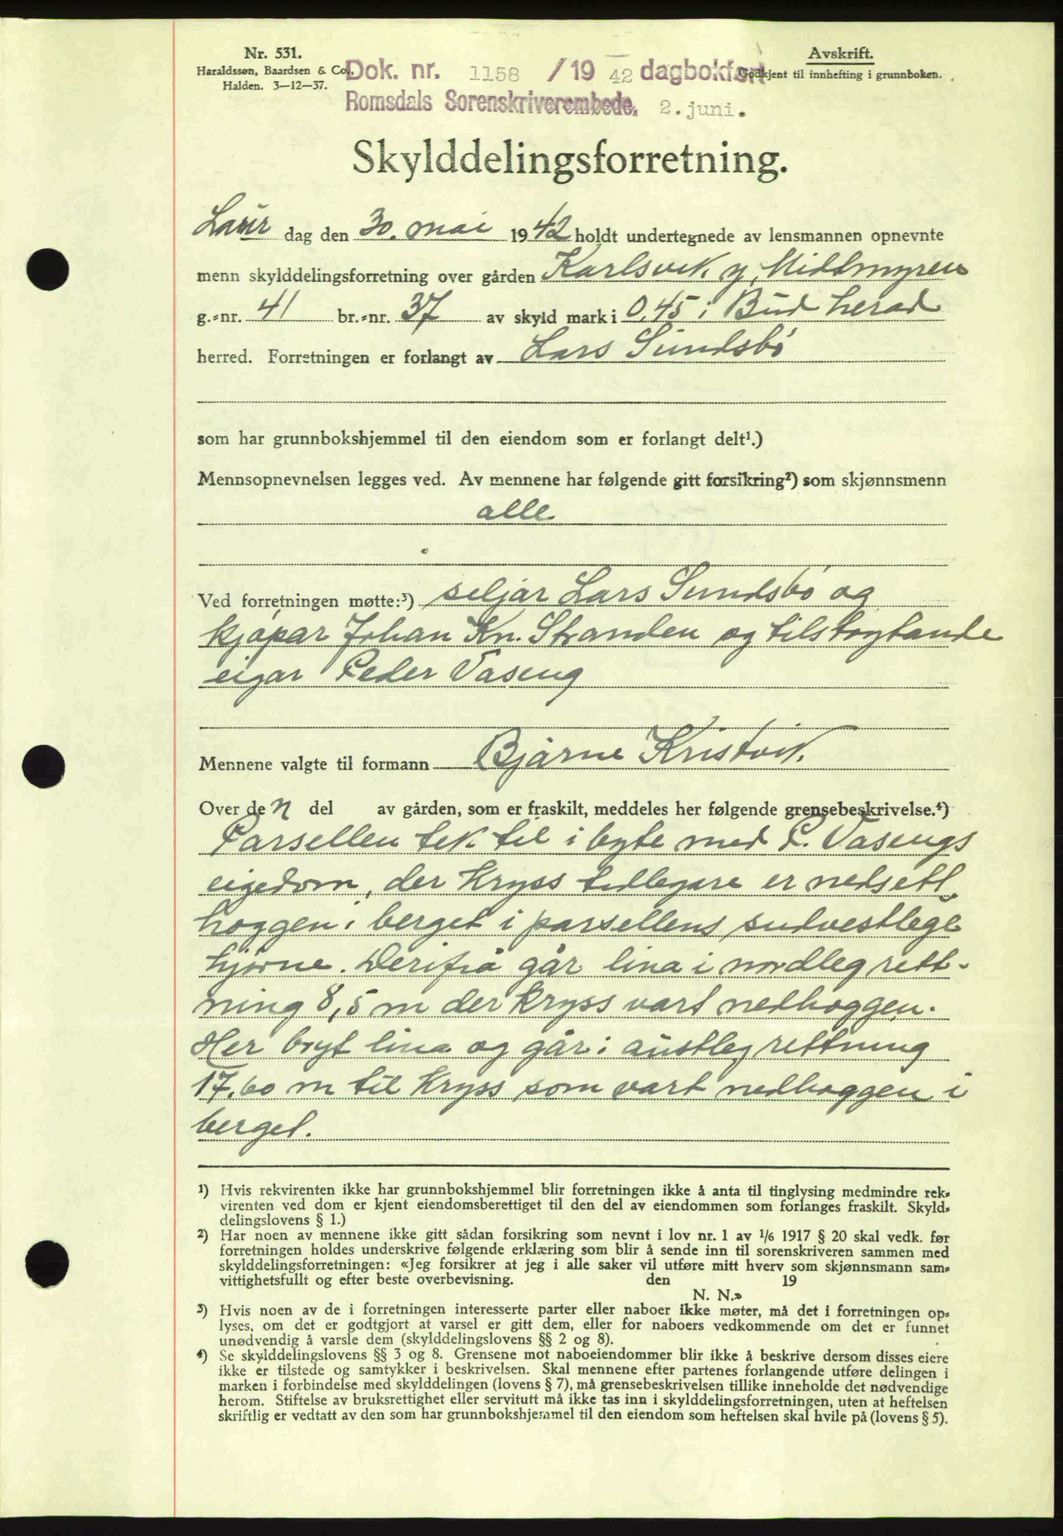 Nr. 531.
Haraldssøn, Baardsen & Co.
Halden. 3—12—37.
Avskrift.
Godkjent til innhefting i grunnboken.
Dok. nr. 1158 /19 42 dagbokført
Romsdals Sorenskriverembede. 2. juni.
Skylddelingsforretning.
Laur dag den 30. mai 1942 holdt undertegnede av lensmannen opnevnte
menn skylddelingsforretning over gården Karlsvik y, Midtmyren
g.-nr. 41 br.-nr. 37 av skyld mark i 0,45 i Bud herad
herred. Forretningen er forlangt av Lars Sundsbö
som har grunnbokshjemmel til den eiendom som er forlangt delt¹.)
Mennsopnevnelsen legges ved. Av mennene har følgende gitt forsikring²) som skjønnsmenn
alle
Ved forretningen møtte:³) seljar Lars Sundsbö og
kjöpar Johan Kn. Stranden og tilstøytande
eigar Peder Vaseng
Mennene valgte til formann Bjarne Kristvik.
Over den del av gården, som er fraskilt, meddeles her følgende grensebeskrivelse.⁴)
Parsellen tek til i byte med P. Vasengs
eigedom, der kryss tidlegare er nedsett,
hoggen i berget i parsellens sudvestlege
hjörne. Derifrå går lina i nordleg rett-
ning 8,5 m der kryss vart nedhoggen.
Her bryt lina og går i austleg rettning
17.60 m til kryss som vart nedhoggen i
berget.
¹) Hvis rekvirenten ikke har grunnbokshjemmel blir forretningen ikke å anta til tinglysing medmindre rek-
virenten ved dom er kjent eiendomsberettiget til den del av eiendommen som forlanges fraskilt. Skyld-
delingslovens § 1.)
²) Har noen av mennene ikke gitt sådan forsikring som nevnt i lov nr. 1 av 1/6 1917 § 20 skal vedk. før
forretningen holdes underskrive følgende erklæring som blir å sende inn til sorenskriveren sammen med
skylddelingsforretningen: «Jeg forsikrer at jeg i alle saker vil utføre mitt hverv som skjønnsmann sam-
vittighetsfullt og efter beste overbevisning. den 19
N. N.»
³) Hvis noen av de i forretningen interesserte parter eller naboer ikke møter, må det i forretningen op-
lyses, om det er godtgjort at varsel er gitt dem, eller for naboers vedkommende om det er funnet
unødvendig å varsle dem (skylddelingslovens §§ 2 og 8).
⁴) Se skylddelingslovens §§ 3 og 8. Grensene mot naboeiendommer blir ikke å beskrive dersom disses eiere
ikke er tilstede og samtykker i beskrivelsen. Skal mennene efter partenes forlangende utføre delingen i
marken i forbindelse med skylddelingen (lovens § 7), må grensebeskrivelsen tillike inneholde det nødvendige
herom. Stiftelse av bruksrettighet eller servitutt må ikke tas inn i skylddelingsforretningen, uten at heftelsen
skriftlig er vedtatt av den som har grunnbokshjemmel til den eiendom som heftelsen skal hvile på (lovens § 5).